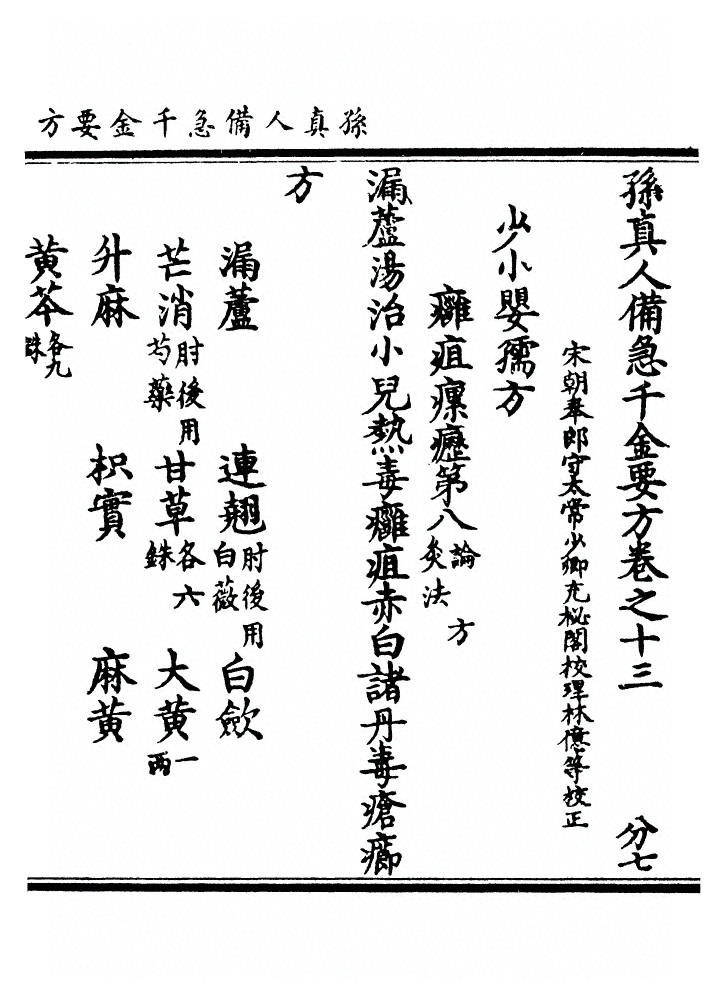 孫真人備急千金要方
孫真人備急千金要方卷之十三 分七
宋朝奉郎守太常少卿充祕閣校理林億等校正
少小嬰孺方
癰疽瘰癧第八論 方 灸法
漏蘆湯治小兒熱毒癰疽赤白諸丹毒瘡癤
方
漏蘆 連翹肘後用白薇 白歛
芒消肘後用芍藥 甘草各六銖 大黃一兩
升麻 枳實 麻黃
黃芩各九銖